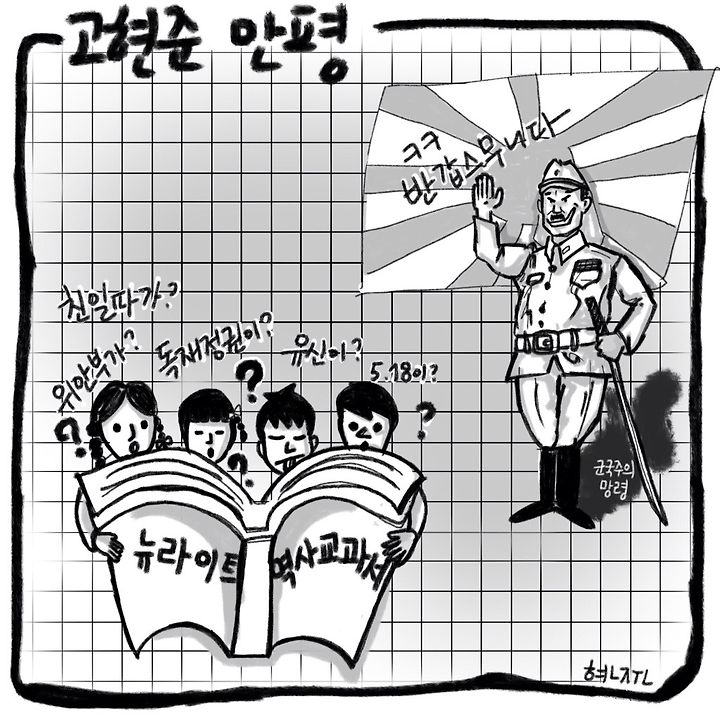 고현준 만평
ㅋㅋ
반갑스무니다
친일따가?
위안부가?
독재정권이?
유신이?
5.18이?
?
?
?
?
뉴라이트
역사교과서
군국주의
망령